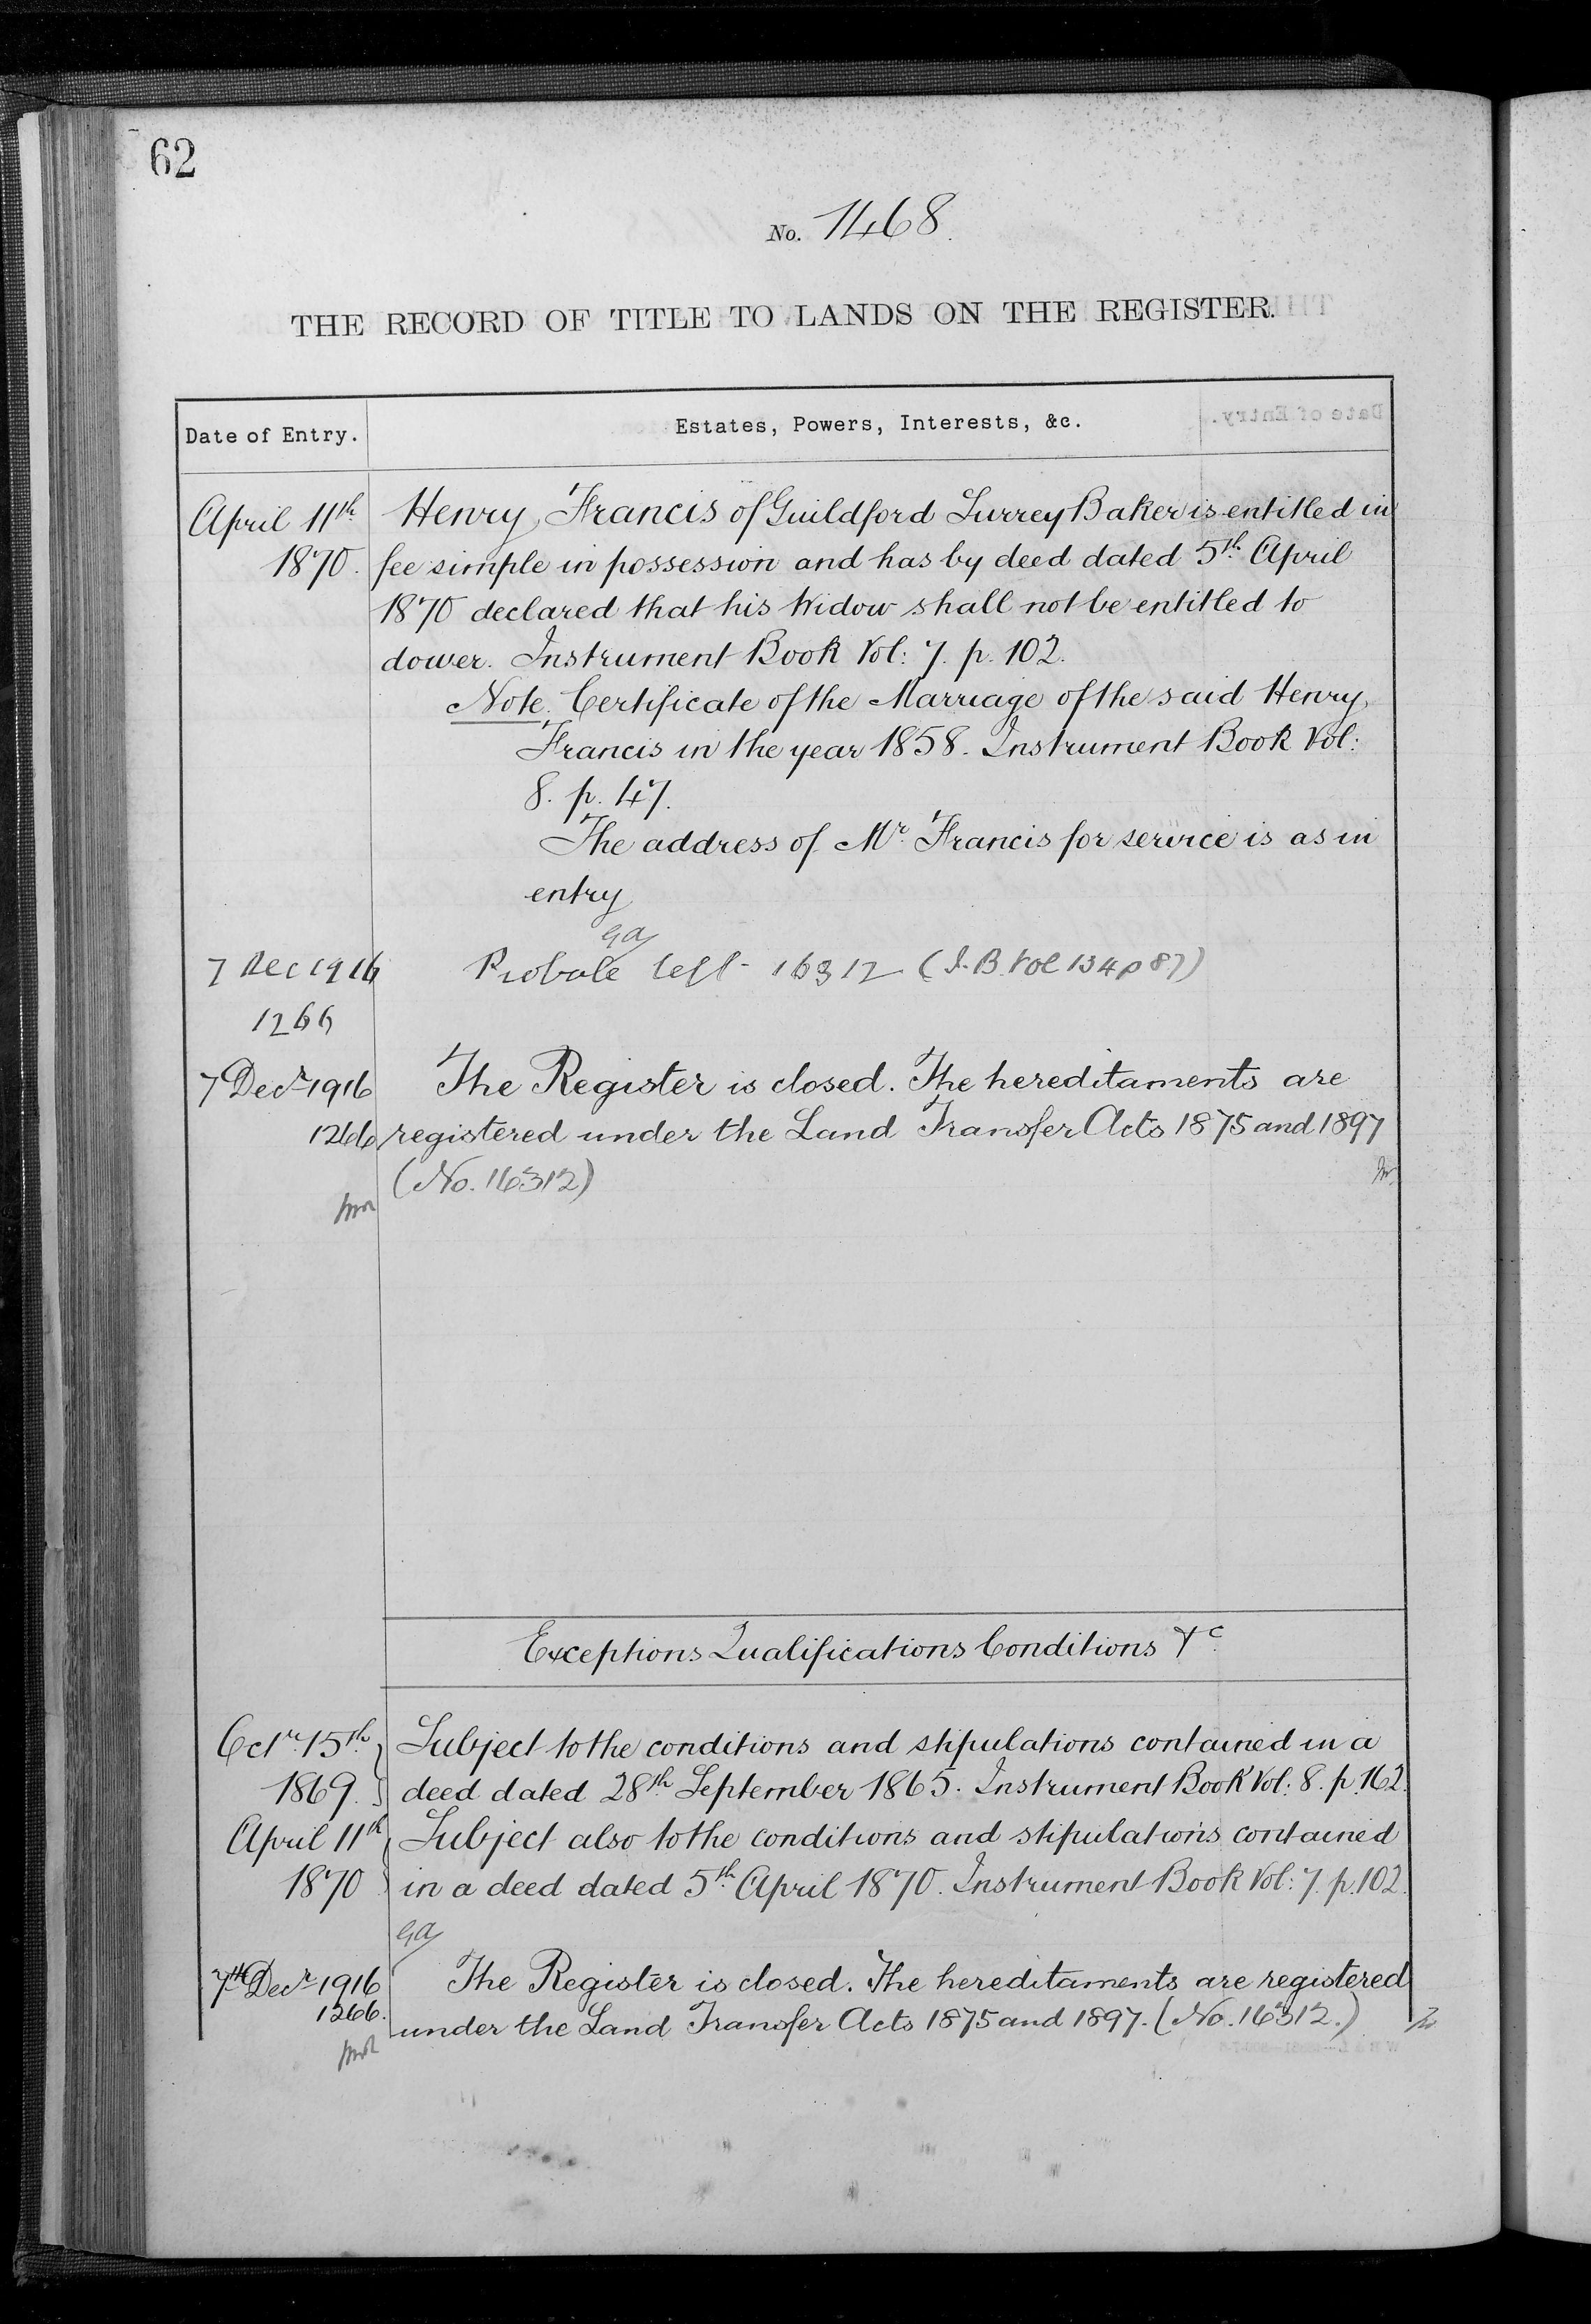 62
No. 1468.
THE RECORD OF TITLE TO LANDS ON THE REGISTER.
Date of Entry.
Estates, Powers, Interests, &c.
April 11th Henry Francis of Guildford Surrey Baker is entitled in
1870. fee simple in possession and has by deed dated 5th April
1870 declared that his Widow shall not be entitled to
dower. Instrument Book Vol: 7. p. 102.
Note. Certificate of the Marriage of the said Henry
Francis in the year 1858. Instrument Book Vol:
8. p. 47.
The address of Mr. Francis for service is as in
entry
GA
7 Dec 1916 Probate left - 16312 (I.B. Vol 134 p 87)
1266
7 Decr 1916 The Register is closed. The hereditaments are
1266 registered under the Land Transfer Acts 1875 and 1897
(No. 16312)
Exceptions Qualifications Conditions &c.
Octr. 15th Subject to the conditions and stipulations contained in a
1869. deed dated 28th September 1865. Instrument Book Vol: 8. p. 162.
April 11th Subject also to the conditions and stipulations contained
1870 in a deed dated 5th April 1870. Instrument Book Vol: 7. p. 102.
GA
7th Decr 1916 The Register is closed. The hereditaments are registered
1266. under the Land Transfer Acts 1875 and 1897. (No. 16312.)